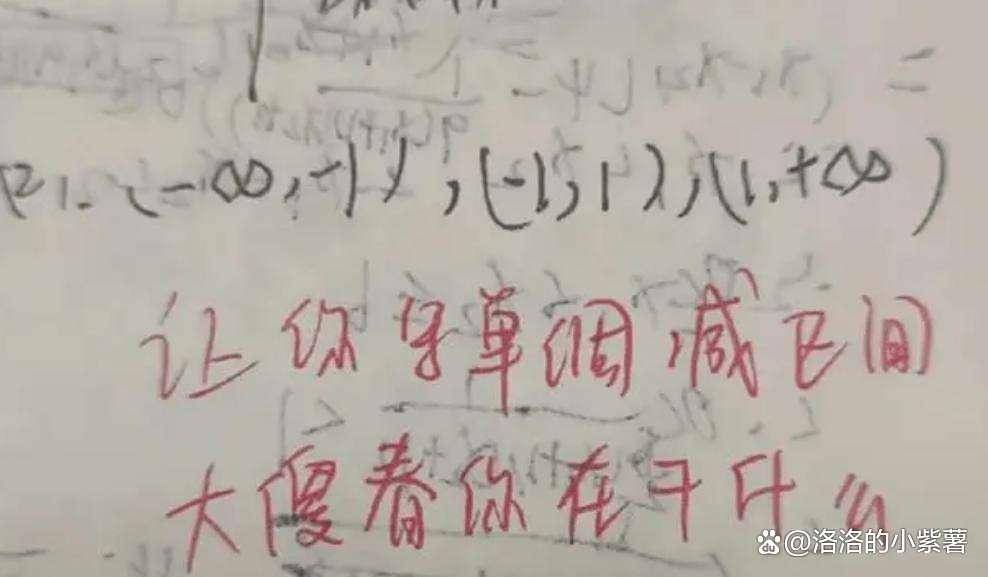 (2). (-∞,-1),(-1,1),(1,+∞)
让你写单调减区间
大傻春你在干什么
@洛洛的小紫薯